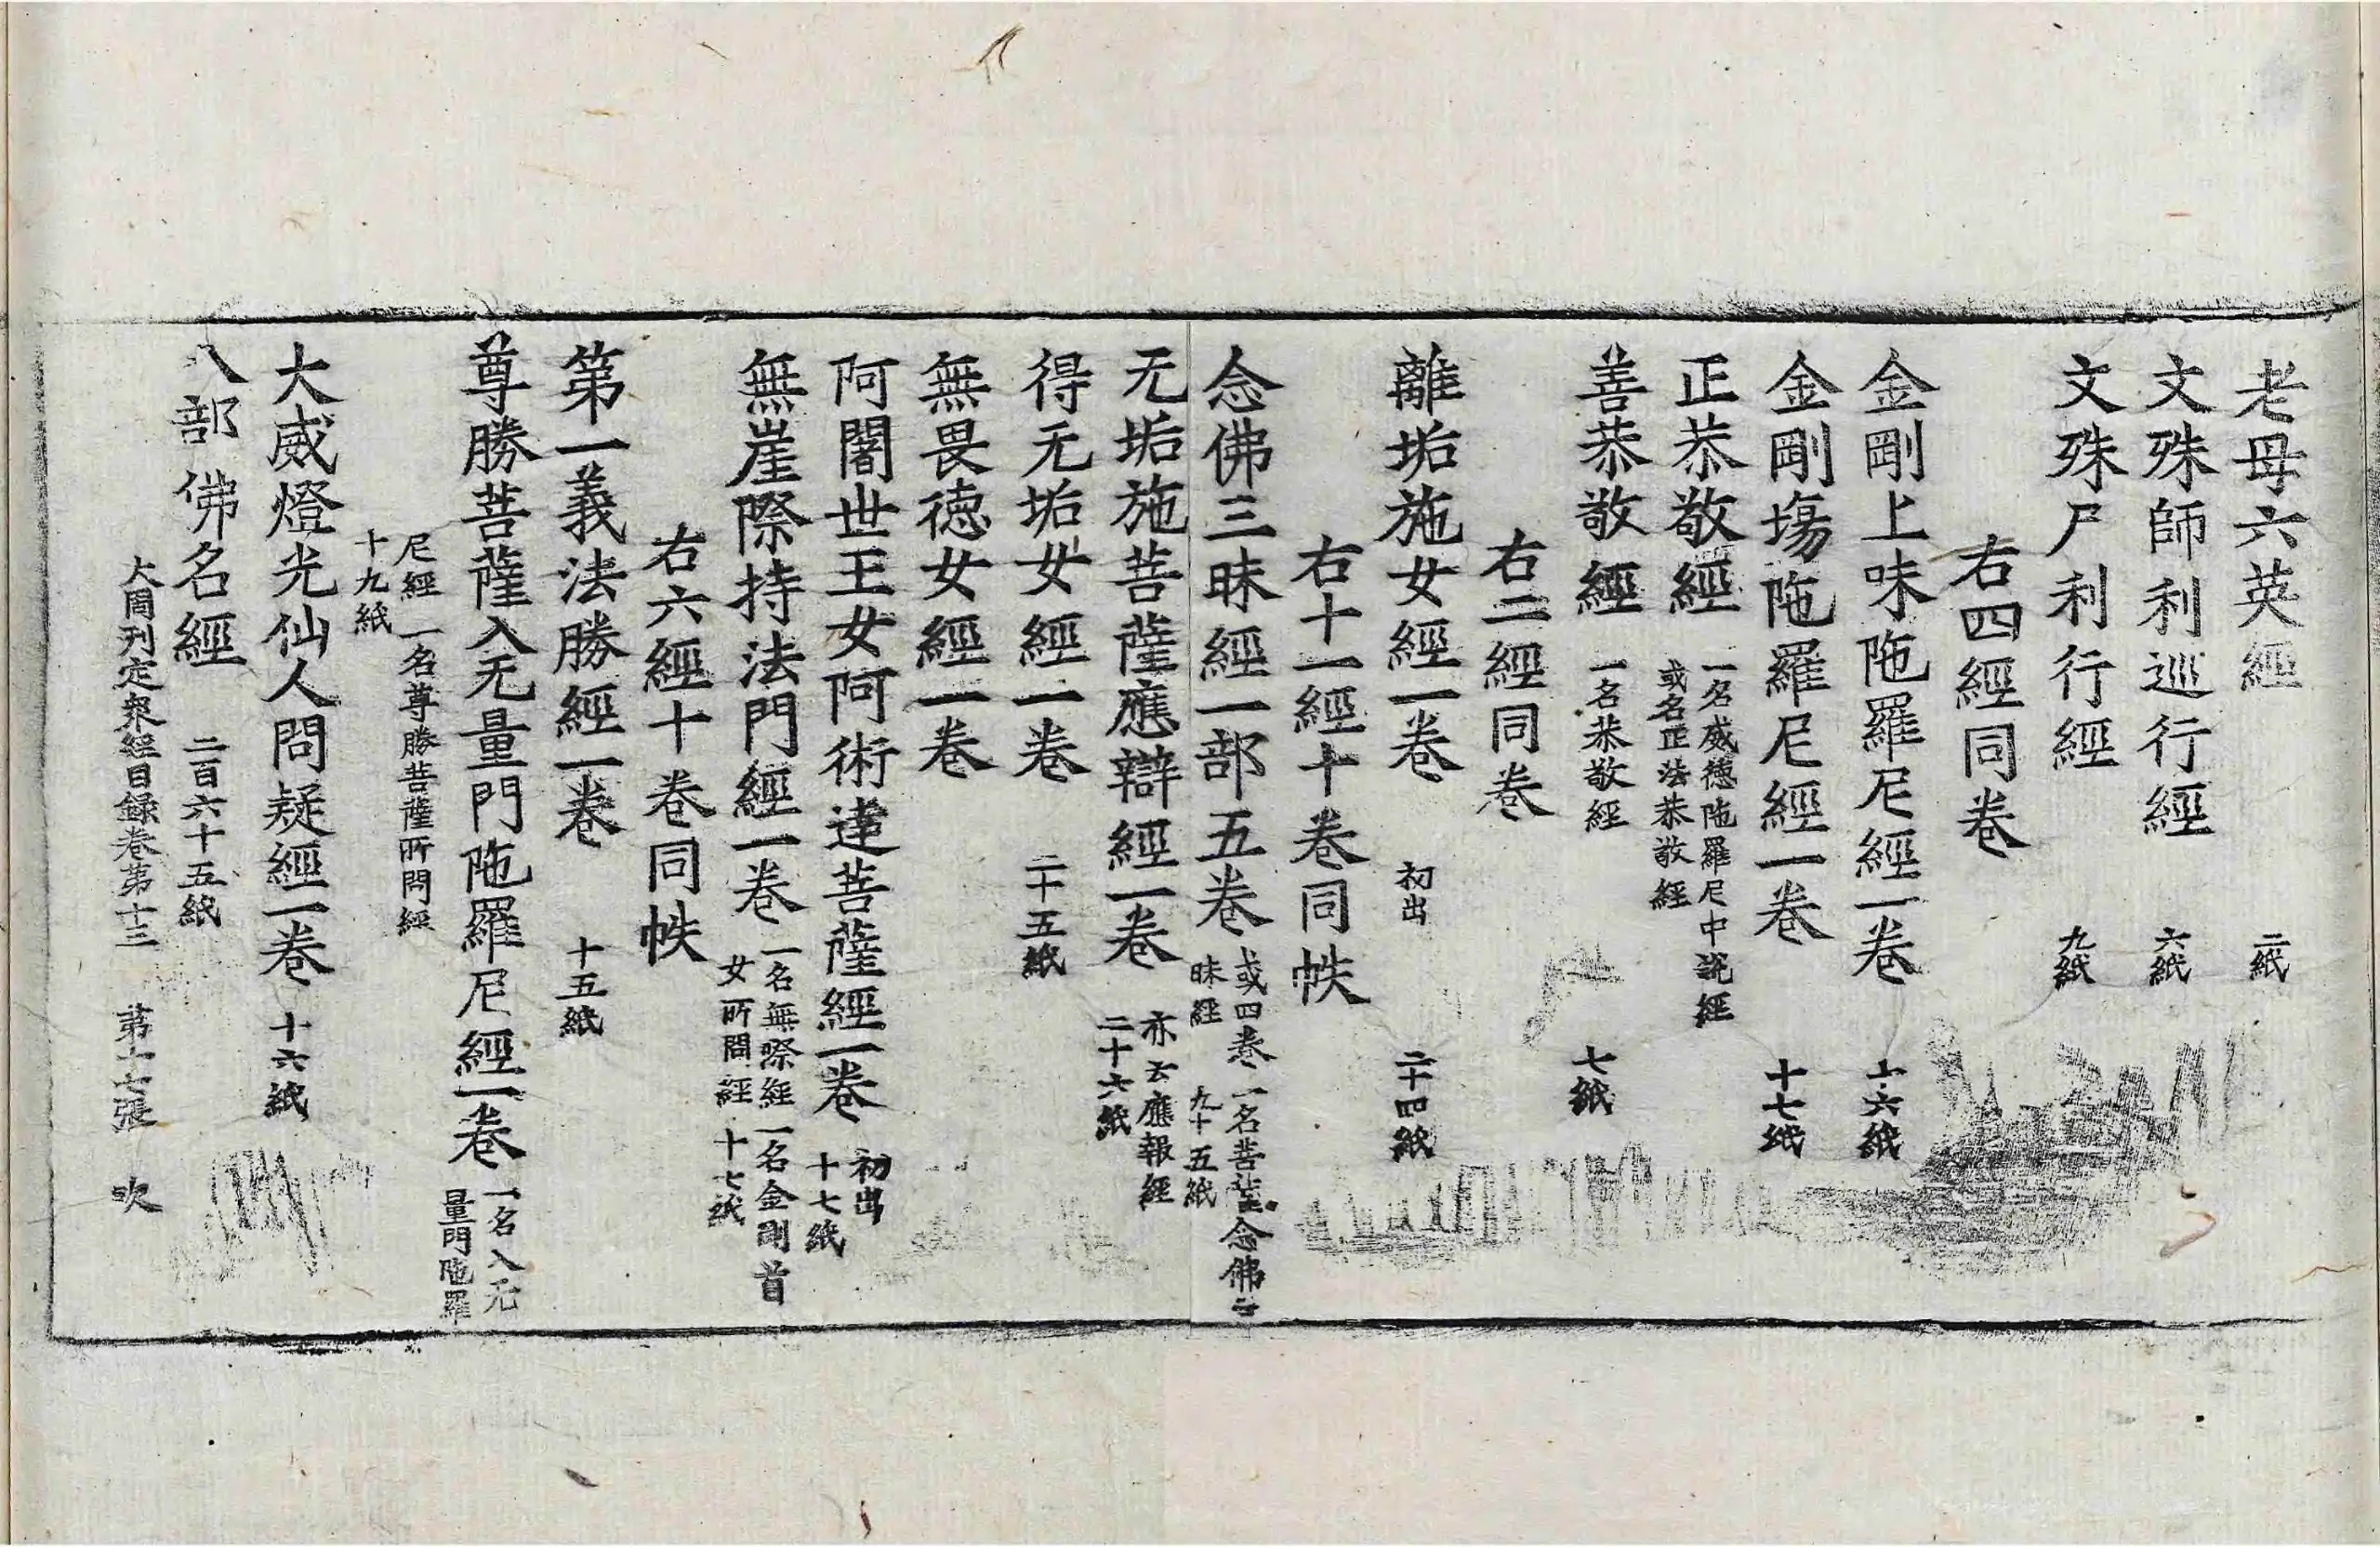 老母六英經 二紙
文殊師利巡行經 六紙
文殊尸利行經 九紙
右四經同卷
金剛上味陁羅尼經一卷 十六紙
金剛塲陁羅尼經一卷 十七紙
正恭敬經 一名威德陁羅尼中說經
或名正法恭敬經
善恭敬經 一名恭敬經 七紙
右二經同卷
離垢施女經一卷 初出 二十四紙
右十一經十卷同帙
念佛三昧經一部五卷 或四卷 一名菩薩念佛三
昧經 九十五紙
无垢施菩薩應辯經一卷 亦云應報經
二十六紙
得无垢女經一卷 二十五紙
無畏德女經一卷
阿闍世王女阿術達菩薩經一卷 初出
十七紙
無崖際持法門經一卷 一名無際經 一名金剛首
女所問經 十七紙
右六經十卷同帙
第一義法勝經一卷 十五紙
尊勝菩薩入无量門陁羅尼經一卷 一名入无
量門陁羅
尼經 一名尊勝菩薩所問經
十九紙
大威燈光仙人問疑經一卷 十六紙
八部佛名經 二百六十五紙
大周刊定衆經目錄卷第十三 第十七張 吹